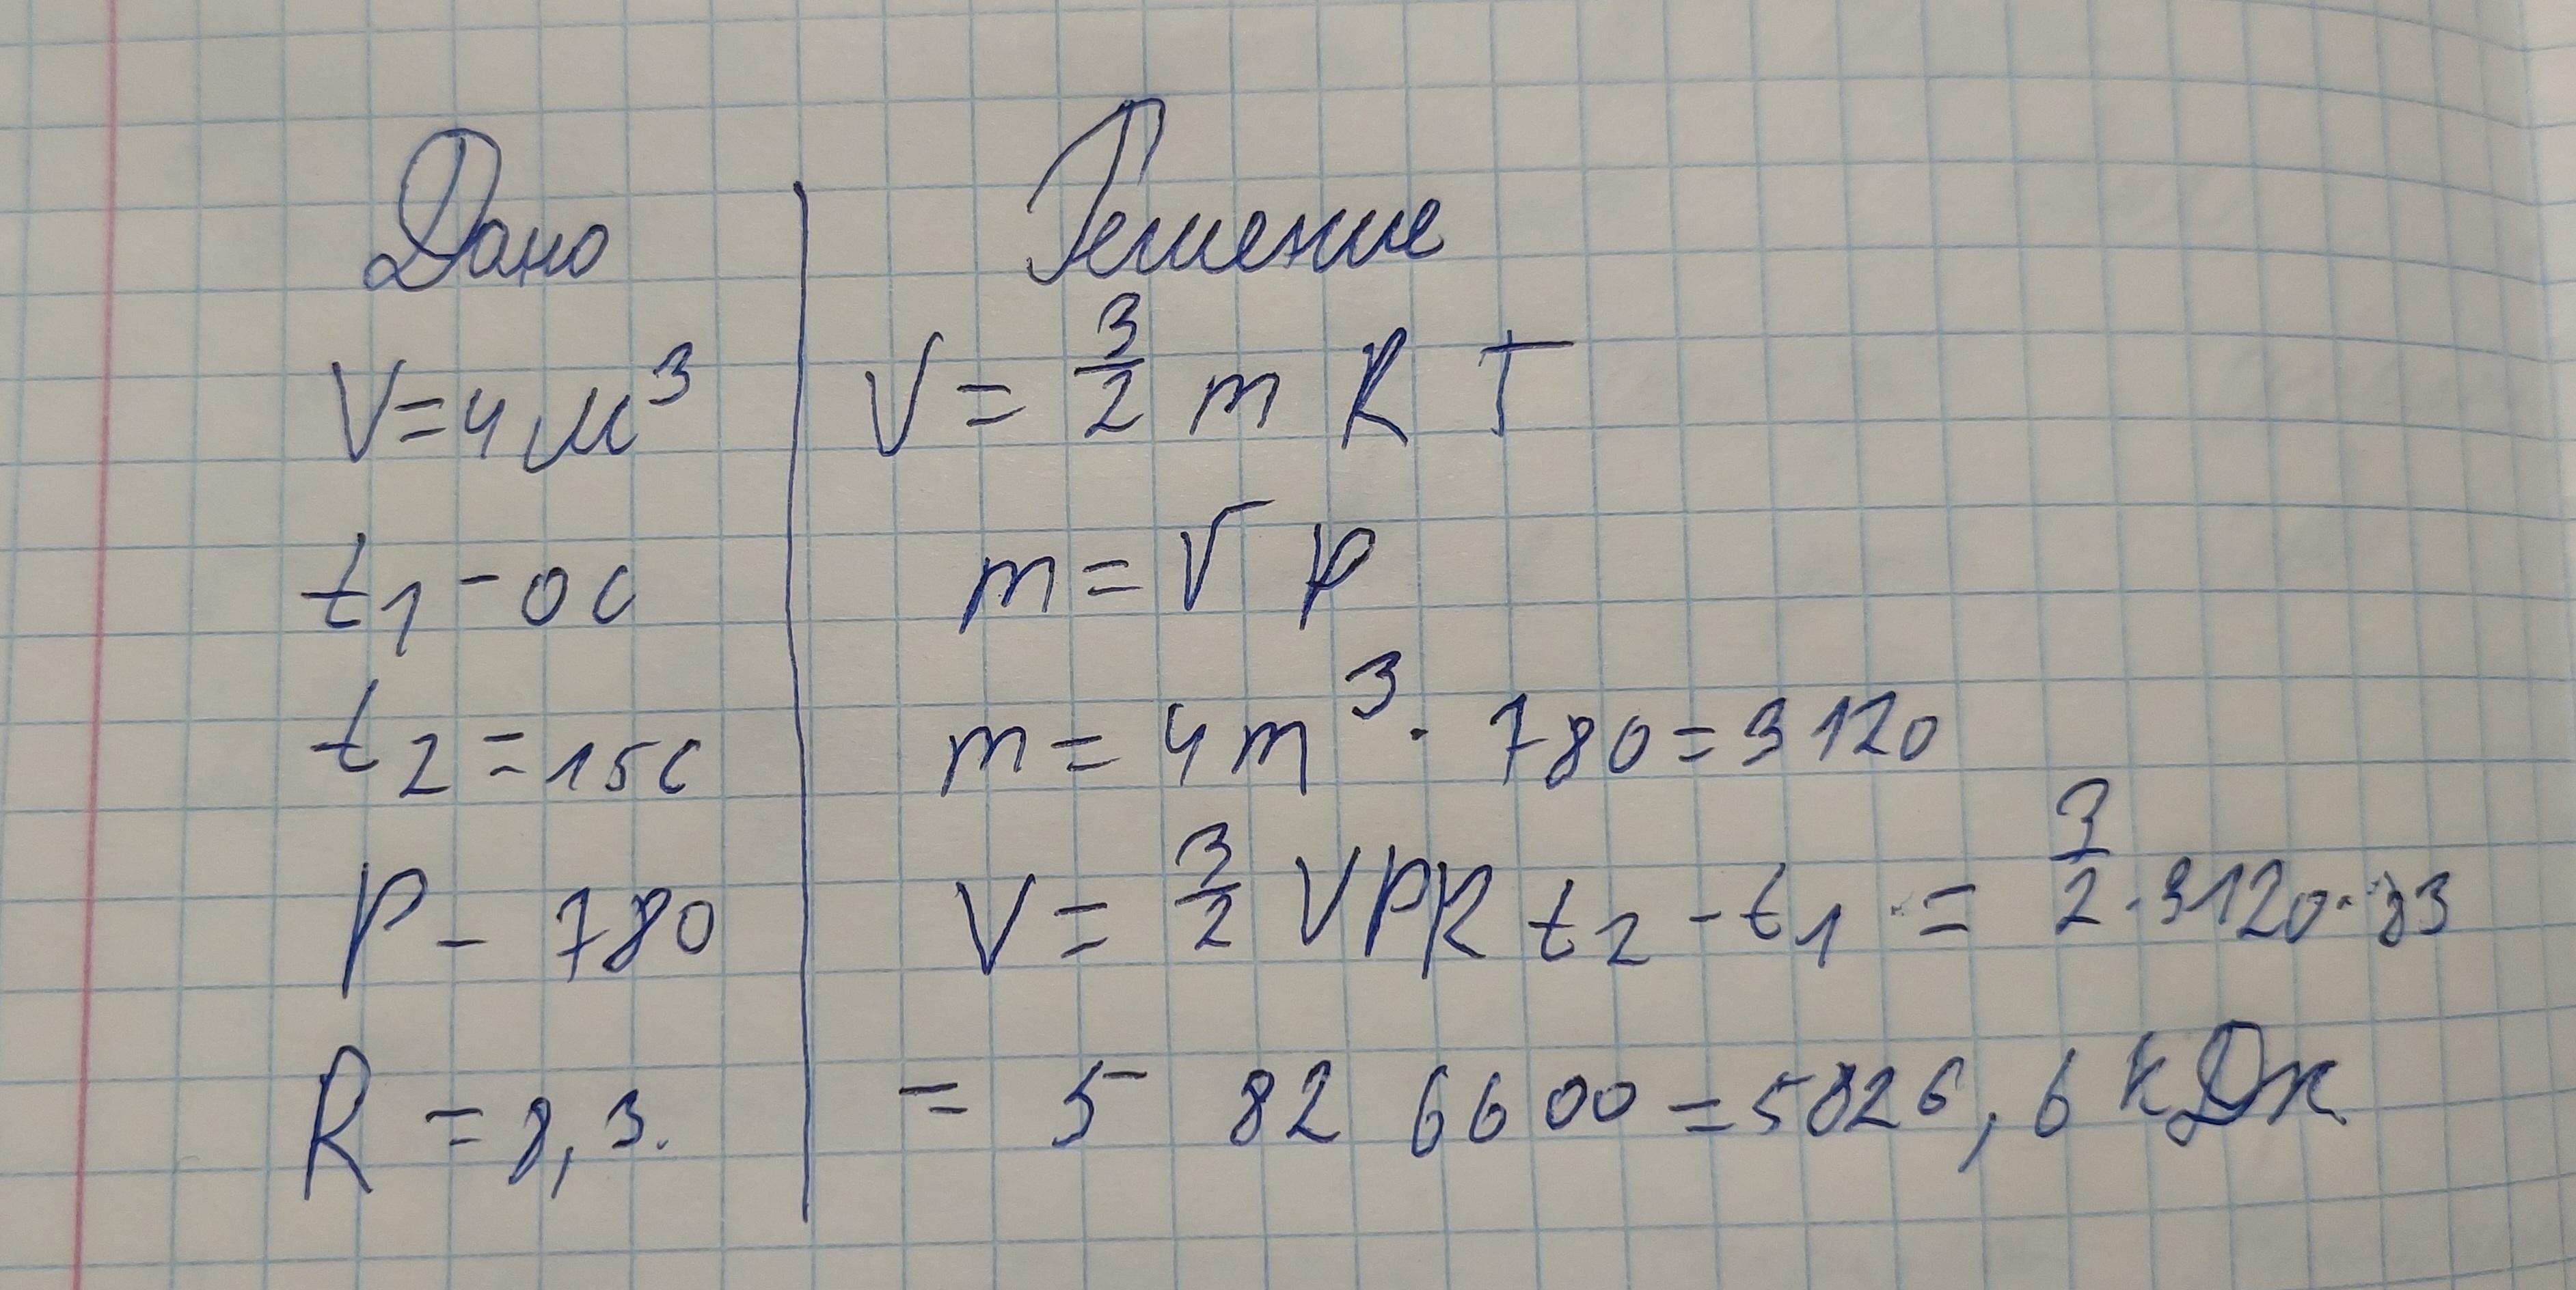 Дано
V=4м³
t₁-0С
t₂=15С
P-780
R=8,3.
Решение
V=3/2 m R T
m=V p
m=4m³·780=3120
V=3/2 VPR t₂-t₁=3/2·3120·83
=5 82 6600=5826,6 кДж